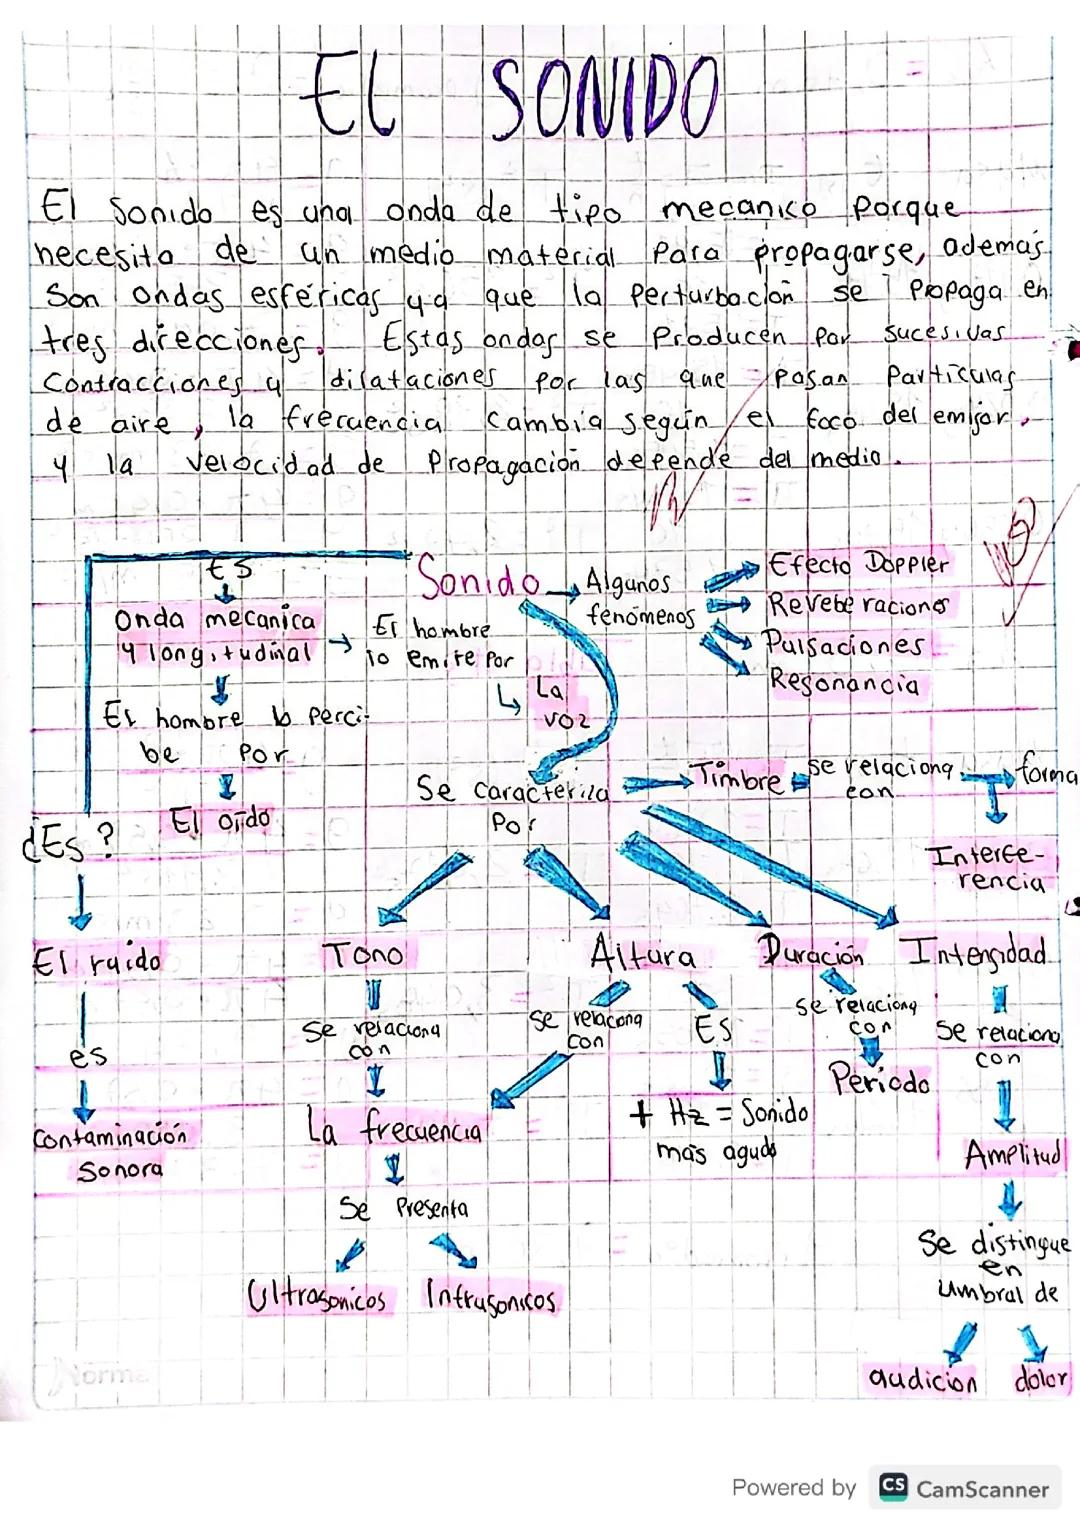 EL SONIDO
El Sonido es una onda de tipo mecanico porque
necesita de un medio material para propagarse, además
Son ondas esféricas ya que la perturbación se propaga en
tres direcciones. Estas ondas se producen por sucesivas
contracciones y dilataciones por las que pasan partículas
de aire, la frecuencia cambia según el foco del emisor,
y la velocidad de propagación depende del medio.
Sonido
ES
Onda mecanica
y longitudinal
El hombre lo perci-
be por
El oído
El hombre
lo emite por
La
voz
Algunos
fenómenos
Efecto Doppler
Reveberaciones
Pulsaciones
Resonancia
Se caracteriza
Por
Timbre
se relaciona
con
forma
Interfe-
rencia
¿Es?
El ruido
es
contaminación
Sonora
Tono
Se relaciona
con
La frecuencia
Se Presenta
Ultrasonicos
Infrasonicos
Altura
Se relaciona
con
ES
+ Hz = Sonido
más agudo
Duración
se relaciona
con
Período
Intensidad
Se relaciona
con
Amplitud
Se distingue
en
Umbral de
audicion
dolor
Norma
Powered by CS CamScanner